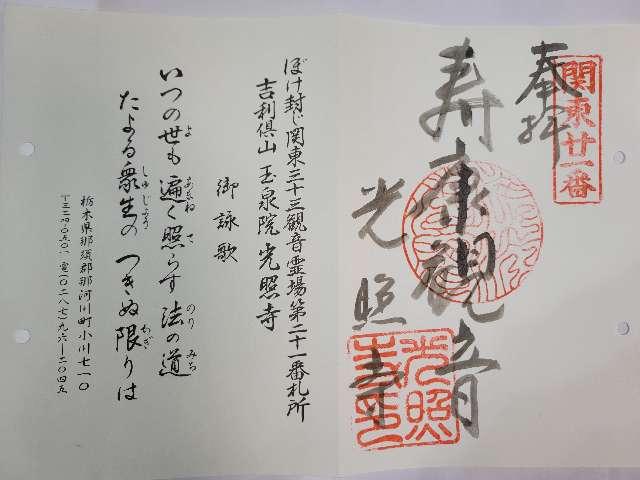 関東廿一番
奉拝
寿康観音
光照寺
光照
寺印
ぼけ封じ関東三十三観音霊場第二十一番札所
吉利倶山 玉泉院 光照寺
御詠歌
いつの世も 遍く照らす 法の道
よ あまね て のり みち
たよる衆生の つきぬ限りは
しゅじょう かぎ
栃木県那須郡那珂川町小川七一〇
〒三二四-〇五〇一 電(〇二八七)九六-二〇四五